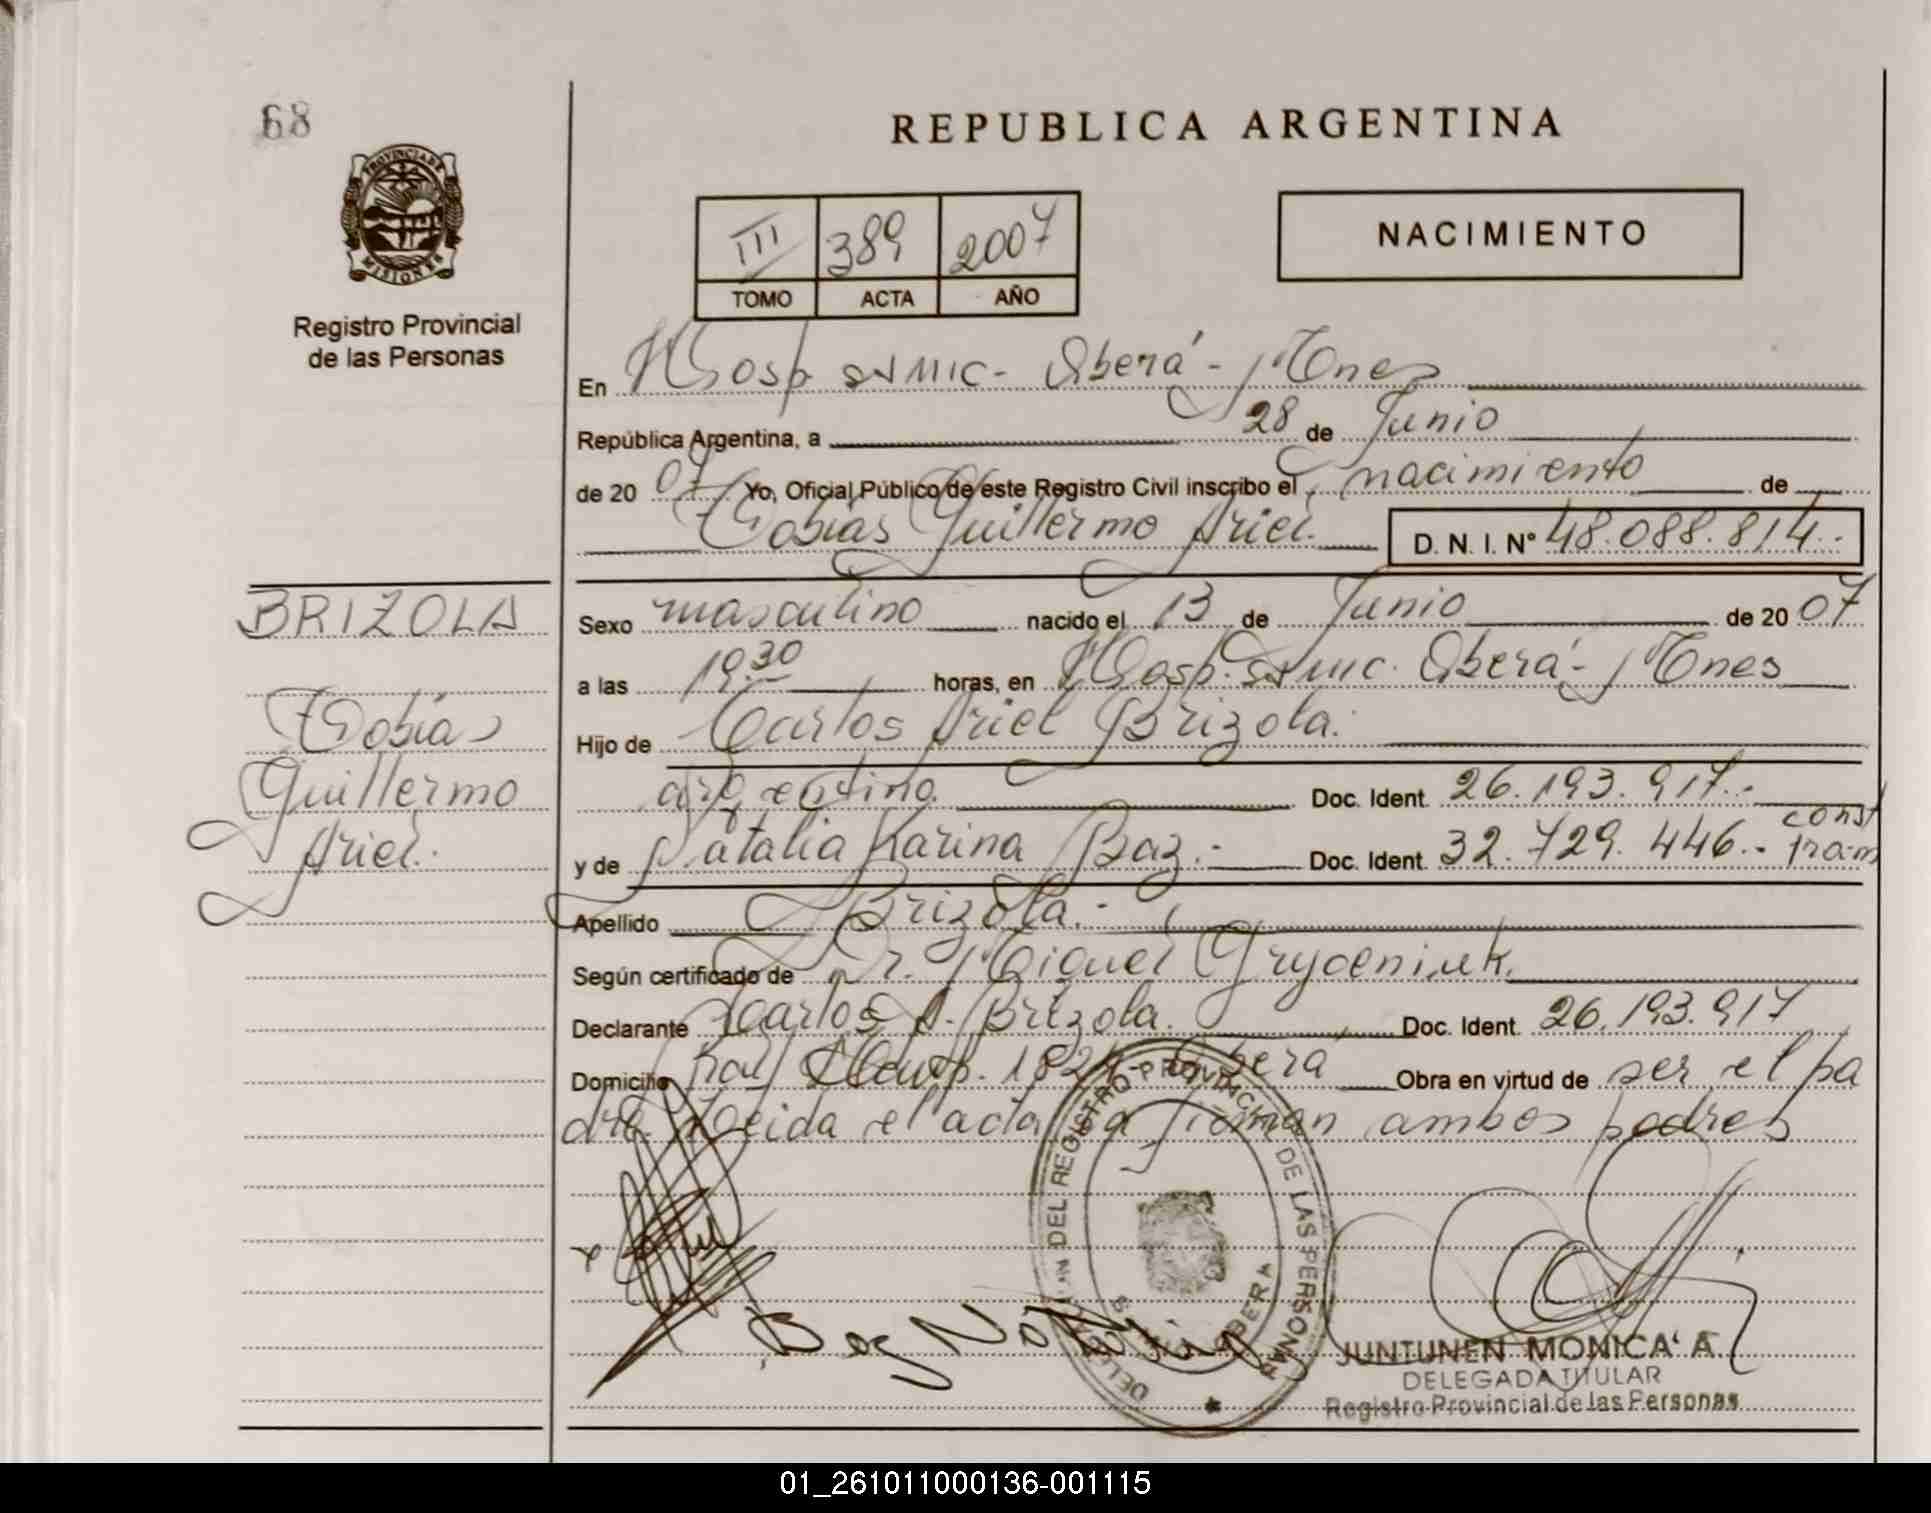 68
REPUBLICA ARGENTINA
PROVINCIA DE
MISIONES
Registro Provincial
de las Personas
III 389 2007
TOMO ACTA AÑO
NACIMIENTO
En Hosp SAMIC - Oberá - Mnes
República Argentina, a 28 de Junio
de 2007 Yo, Oficial Público de este Registro Civil inscribo el nacimiento de
Tobías Guillermo Ariel.
D. N. I. N° 48.088.814.-
BRIZOLA
Tobías
Guillermo
Ariel.
Sexo masculino nacido el 13 de Junio de 2007
a las 19.30 horas, en Hosp. SAMIC. Oberá - Mnes
Hijo de Carlos Ariel Brizola.
argentino. Doc. Ident. 26.193.917.-
y de Natalia Karina Baz.- Doc. Ident. 32.729.446.- const tram
Apellido Brizola.-
Según certificado de Dr. Miguel
Declarante Carlos A. Brizola. Doc. Ident. 26.193.917
Domicilio 1824 Oberá Obra en virtud de ser el pa
dre. Leída el acta la firman ambos padres
DELEGACION DEL REGISTRO PROVINCIAL DE LAS PERSONAS
OBERA
Baz Natalia
JUNTUNEN MONICA A.
DELEGADA TITULAR
Registro Provincial de las Personas
01_261011000136-001115